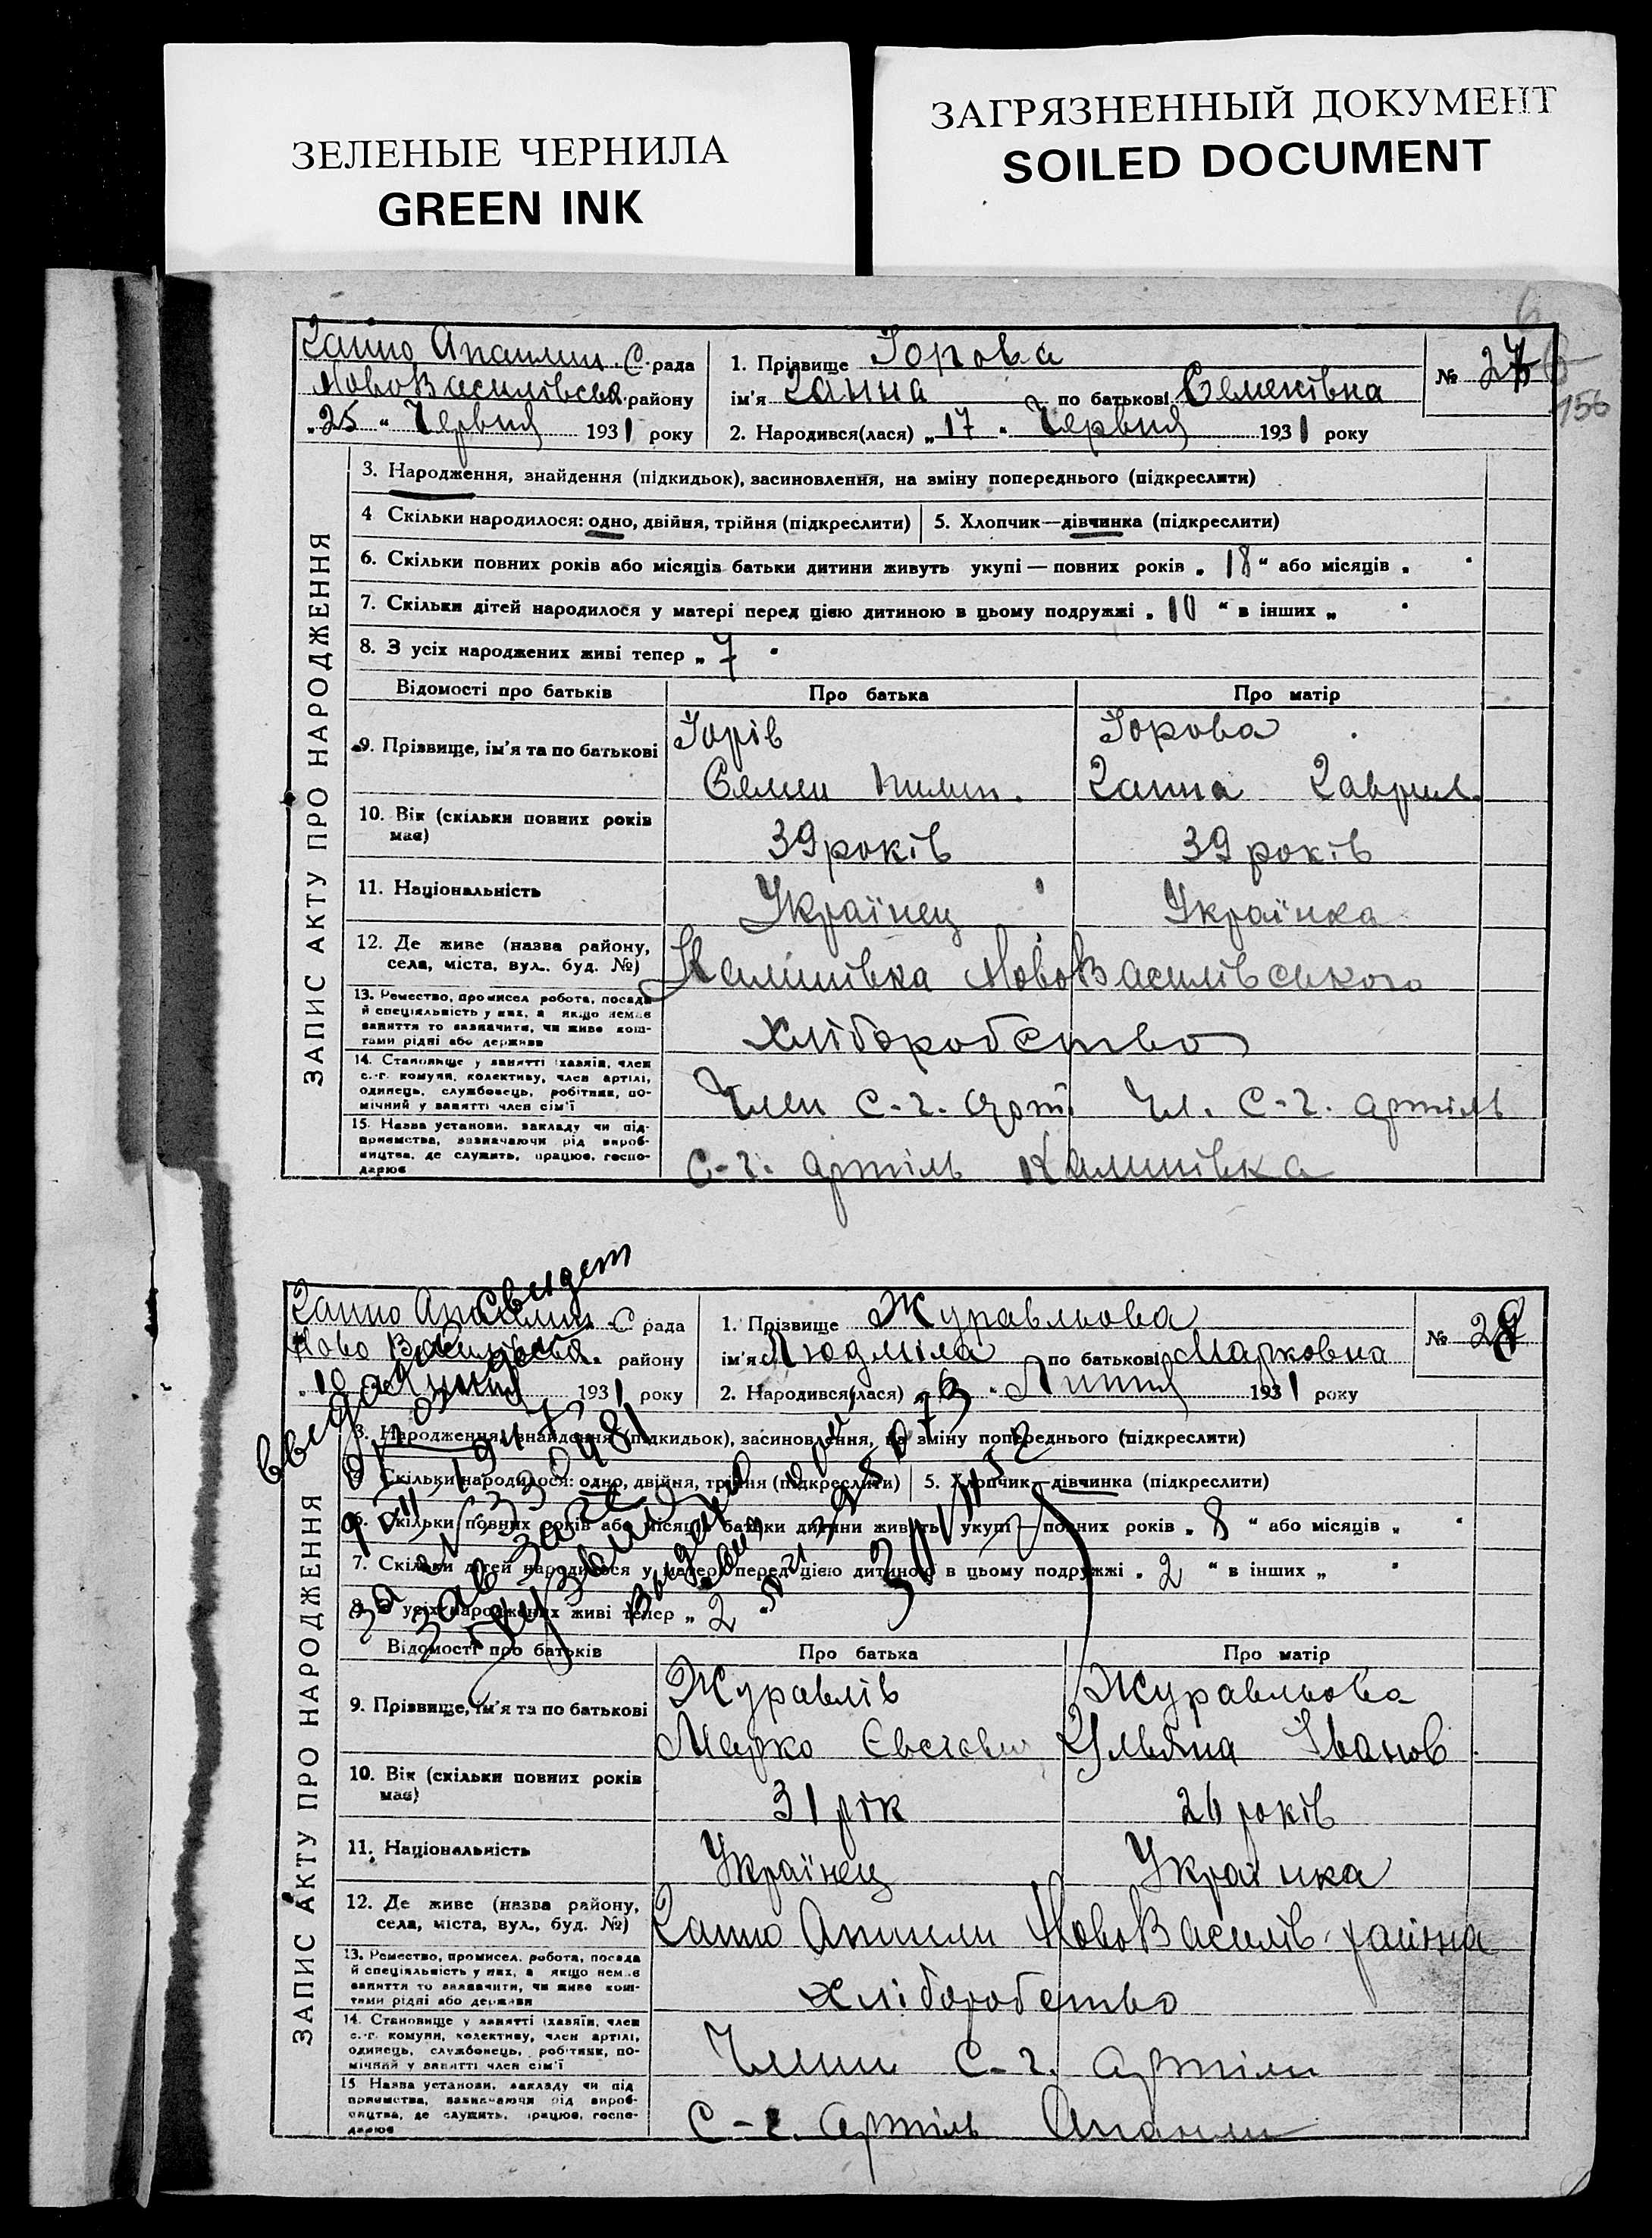 ЗЕЛЕНЫЕ ЧЕРНИЛА
GREEN INK
ЗАГРЯЗНЕННЫЙ ДОКУМЕНТ
SOILED DOCUMENT
156
ЗАПИС АКТУ ПРО НАРОДЖЕННЯ
Ганно С. рада
НовоВасилівськ. району
„25“ Червня 1931 року
1. Прізвище Юрова
ім'я Ганна по батькові Семенівна
2. Народився(лася) „17“ Червня 1931 року
№ 27
3. Народження, знайдення (підкидьок), засиновлення, на зміну попереднього (підкреслити)
4 Скільки народилося: одно, двійня, трійня (підкреслити)
5. Хлопчик—дівчинка (підкреслити)
6. Скільки повних років або місяців батьки дитини живуть укупі — повних років „18“ або місяців „
7. Скільки дітей народилося у матері перед цією дитиною в цьому подружжі „10“ в інших „
8. З усіх народжених живі тепер „7“
Відомості про батьків Про батька Про матір
9. Прізвище, ім'я та по батькові
Юрів Юрова
Семен Пилип. Ганна Гаврил.
10. Вік (скільки повних років має) 39 років 39 років
11. Національність Українец Українка
12. Де живе (назва району, села, міста, вул., буд. №) НовоВасилівського
13. Ремество, промисел робота, посада й спеціяльність у них, а якщо немає заняття то зазначити, чи живе коштами рідні або держави
Хліборобство
14. Становище у занятті (хазяїн, член с.-г. комуни, колективу, член артілі, одинець, службовець, робітник, помічний у занятті член сім'ї
Член с-г. арт. Чл. с-г. артіль
15. Назва установи, закладу чи підприємства, зазначаючи рід виробництва, де служить, працює, господарює
С-г. артіль Калинівка
ЗАПИС АКТУ ПРО НАРОДЖЕННЯ
Ганно С рада
Ново району
„10 1931 року
1. Прізвище Журавльова
ім'я Людміла по батькові Марковна
2. Народився(лася) Липня 1931 року
№ 28
3. Народження, знайдення (підкидьок), засиновлення, на зміну попереднього (підкреслити)
Скільки народилося: одно, двійня, трійня (підкреслити)
5. Хлопчик—дівчинка (підкреслити)
6. Скільки повних років або місяців батьки дитини живуть укупі — повних років „8“ або місяців „
7. Скільки дітей народилося у матері перед цією дитиною в цьому подружжі „2“ в інших „
8. З усіх народжених живі тепер „2“
Відомості про батьків Про батька Про матір
9. Прізвище, ім'я та по батькові
Журавлів Журавльова
Марко Уляна Іванов
10. Вік (скільки повних років має) 31 рік 26 років
11. Національність Українец Українка
12. Де живе (назва району, села, міста, вул., буд. №) Ганно НовоВасилів. району
13. Ремество, промисел, робота, посада й спеціяльність у них, а якщо немає заняття то зазначити, чи живе коштами рідні або держави
хліборобство
14. Становище у занятті (хазяїн, член с.-г. комуни, колективу, член артілі, одинець, службовець, робітник, помічний у занятті член сім'ї
Члени с-г. артіли
15 Назва установи, закладу чи підприємства, зазначаючи рід виробництва, де служить, працює, господарює
с-г. артіль